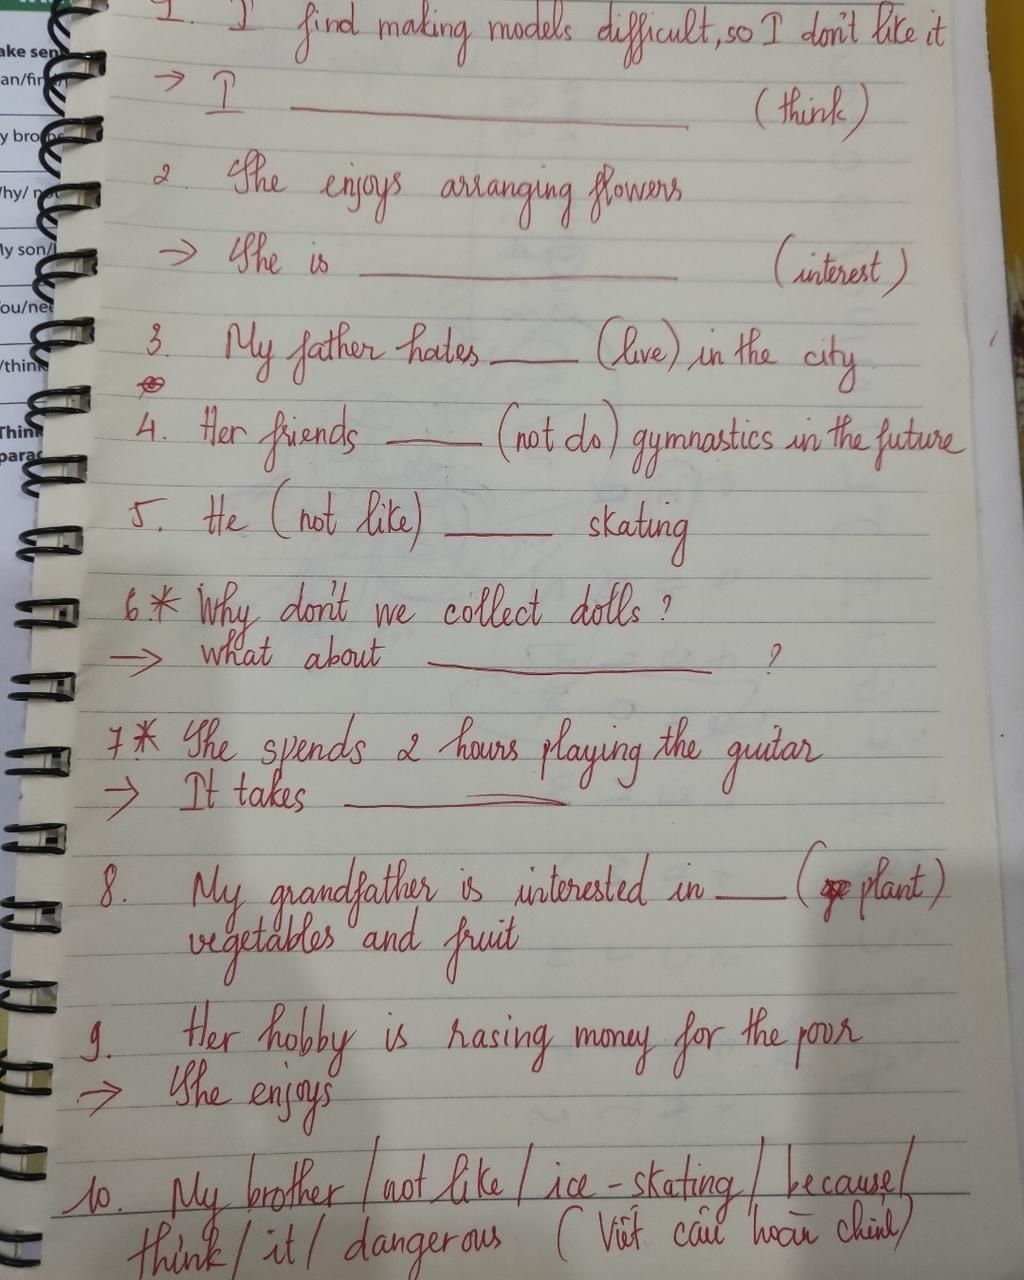 1. I find making models difficult, so I don't like it
→ I ________ (think)
2. She enjoys arranging flowers
→ She is ________ (interest)
3. My father hates ____ (live) in the city
4. Her friends ____ (not do) gymnastics in the future
5. He (not like) ____ skating
6* Why don't we collect dolls?
→ what about ________ ?
7* She spends 2 hours playing the guitar
→ It takes ________
8. My grandfather is interested in ____ (plant)
vegetables and fruit
9. Her hobby is rasing money for the poor
→ She enjoys
10. My brother / not like / ice-skating / because /
think / it / dangerous (Viết câu hoàn chỉnh)